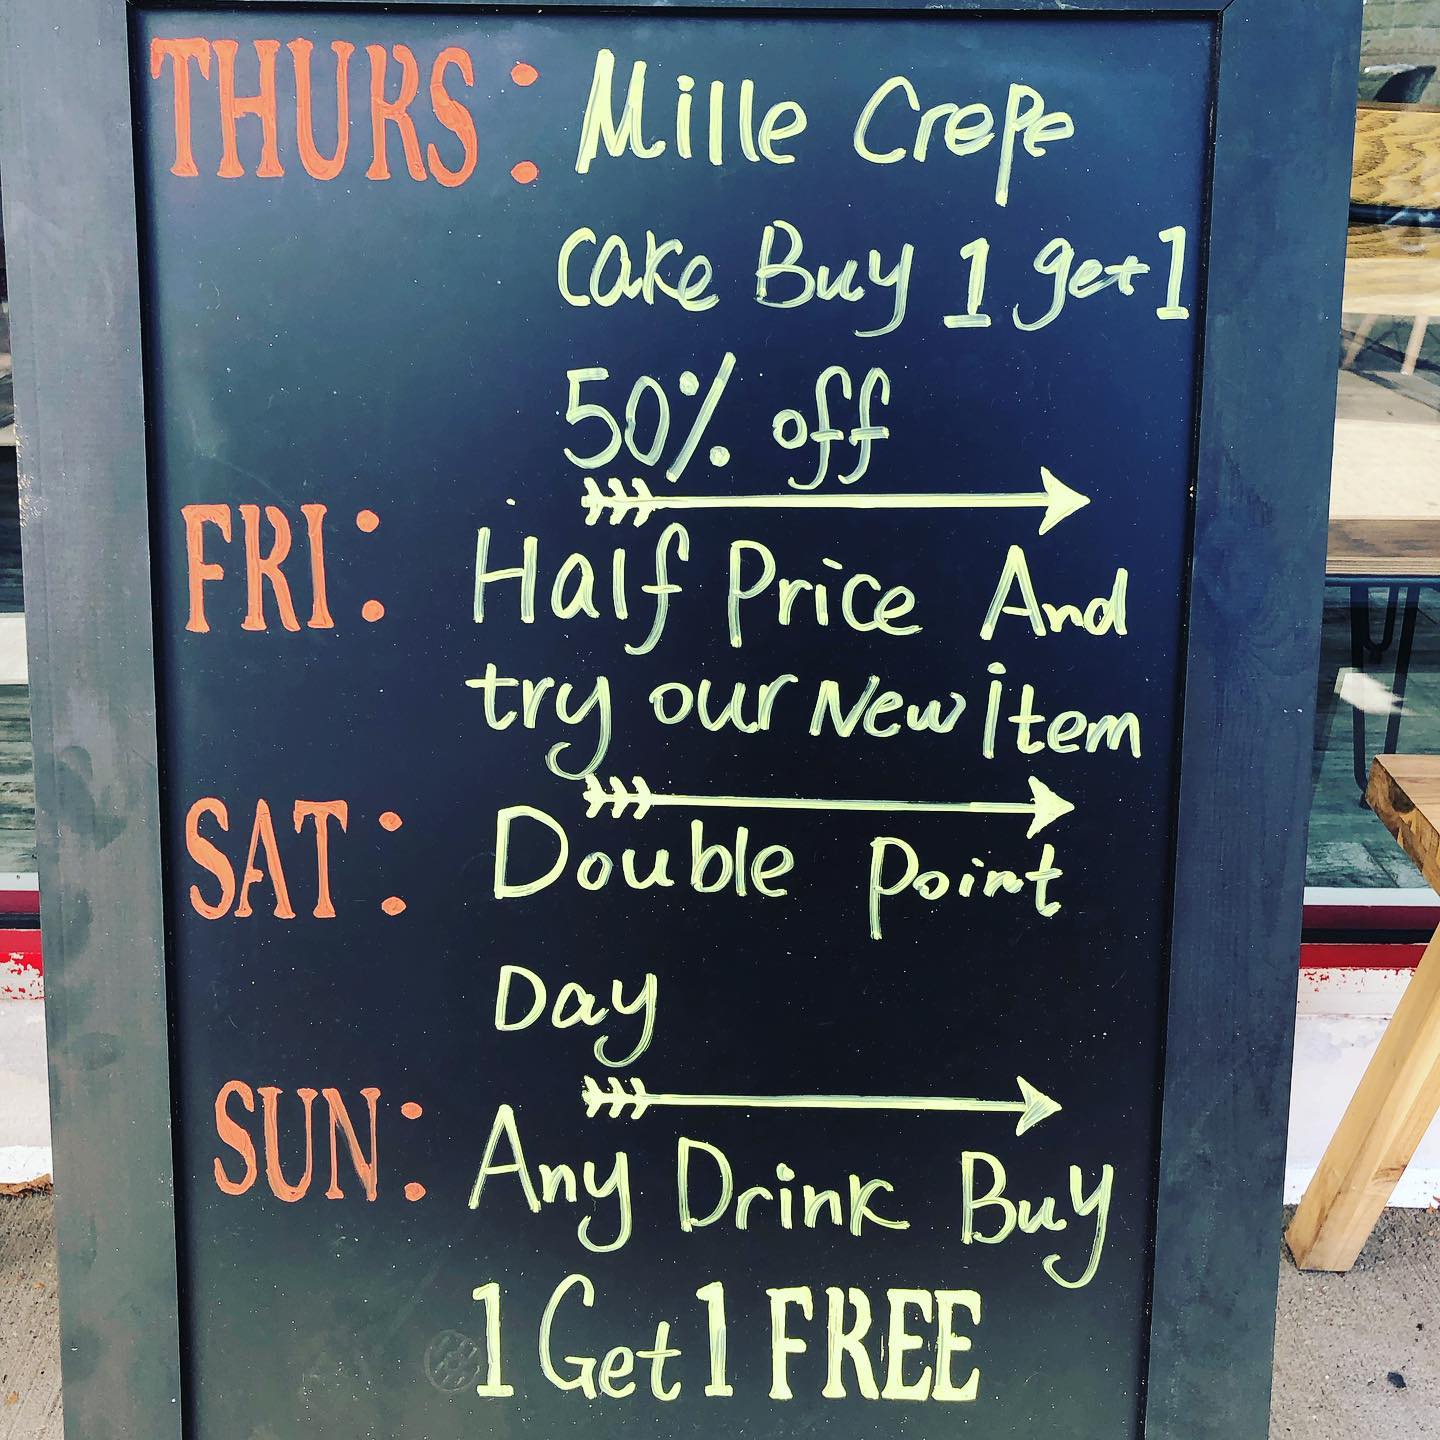 THURS: Mille Crepe
cake Buy 1 get 1
50% off
FRI: Half Price And
try our New item
SAT: Double Point
Day
SUN: Any Drink Buy
1 Get 1 FREE